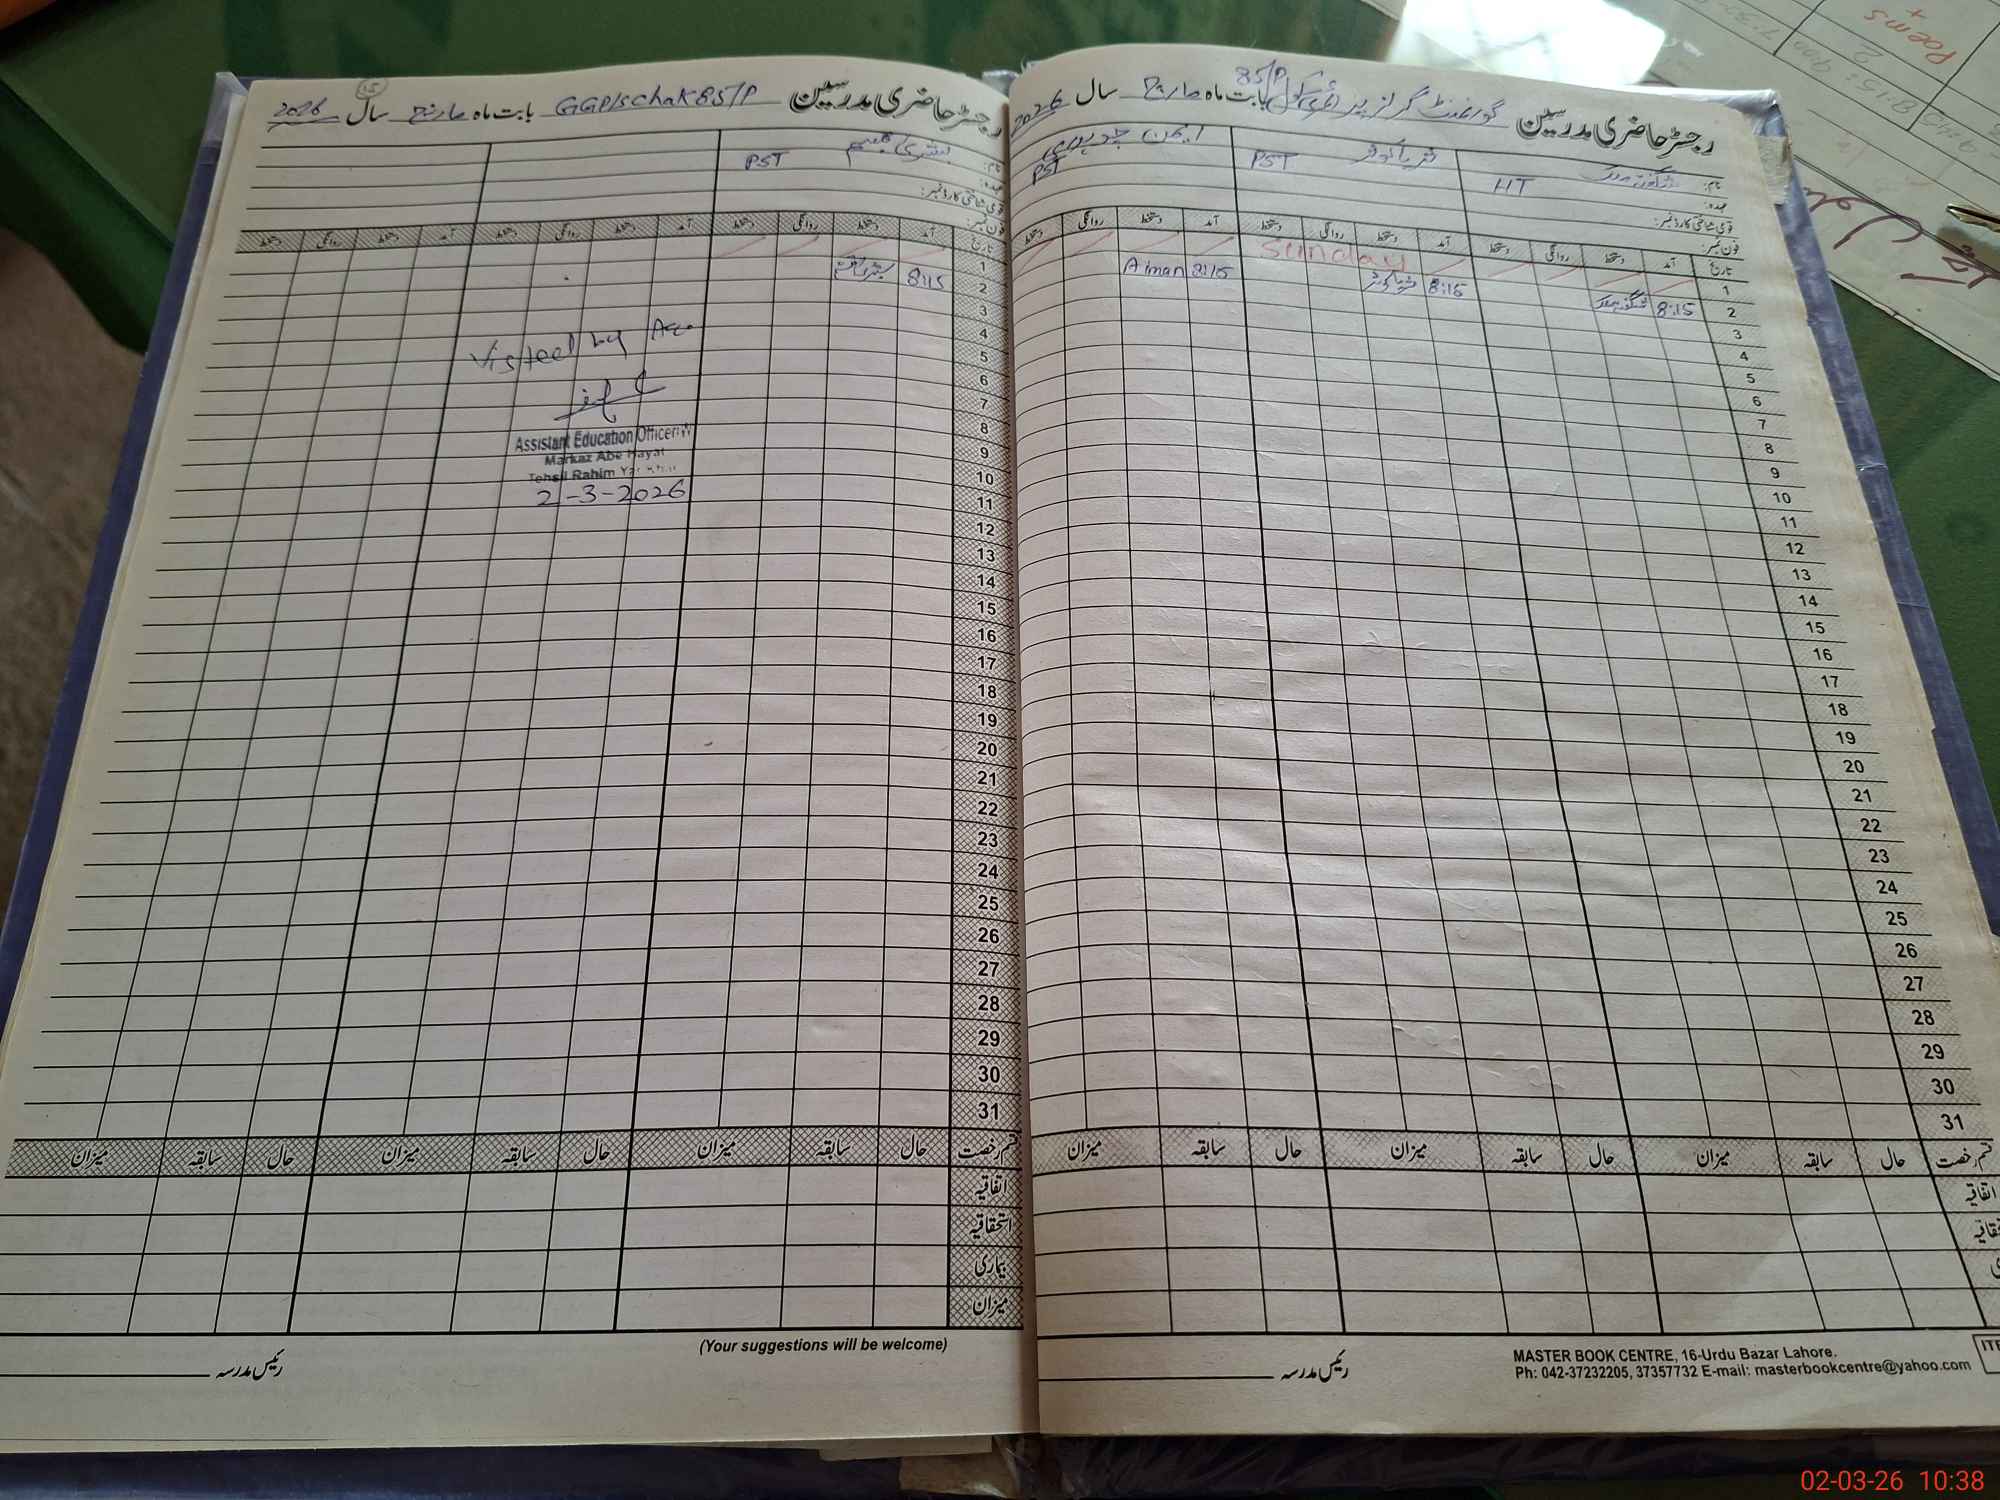 رجسٹر حاضری مدرسین گورنمنٹ گرلز پرائمری سکول 85/P بابت ماہ مارچ سال 2026
نام:
عہدہ: HT PST PST
ثریا کوثر ایمن
قومی شناختی کارڈ نمبر:
فون نمبر:
تاریخ آمد دستخط روانگی دستخط آمد دستخط روانگی دستخط آمد دستخط روانگی دستخط
1 Sunday
2 8:15 8:15 ثریا کوثر 8:15 Aiman
3
4
5
6
7
8
9
10
11
12
13
14
15
16
17
18
19
20
21
22
23
24
25
26
27
28
29
30
31
قسم رخصت حال سابقہ میزان حال سابقہ میزان حال سابقہ میزان
اتفاقیہ
رئیس مدرسہ
MASTER BOOK CENTRE, 16-Urdu Bazar Lahore.
Ph: 042-37232205, 37357732 E-mail: masterbookcentre@yahoo.com
رجسٹر حاضری مدرسین GGP/schak85/P بابت ماہ مارچ سال 2026
15
نام: بشری
عہدہ: PST
قومی شناختی کارڈ نمبر:
فون نمبر:
تاریخ آمد دستخط روانگی دستخط آمد دستخط روانگی دستخط آمد دستخط روانگی دستخط
1
2 8:15
3
4
5
6
7
8
9
10
11
12
13
14
15
16
17
18
19
20
21
22
23
24
25
26
27
28
29
30
31
Visited by
Assistant Education Officer
Markaz Abe Hayat
Tehsil Rahim Yar
2-3-2026
قسم رخصت حال سابقہ میزان حال سابقہ میزان حال سابقہ میزان
اتفاقیہ
استحقاقیہ
بیماری
میزان
(Your suggestions will be welcome)
رئیس مدرسہ
Poems
+
2
8:15
02-03-26 10:38